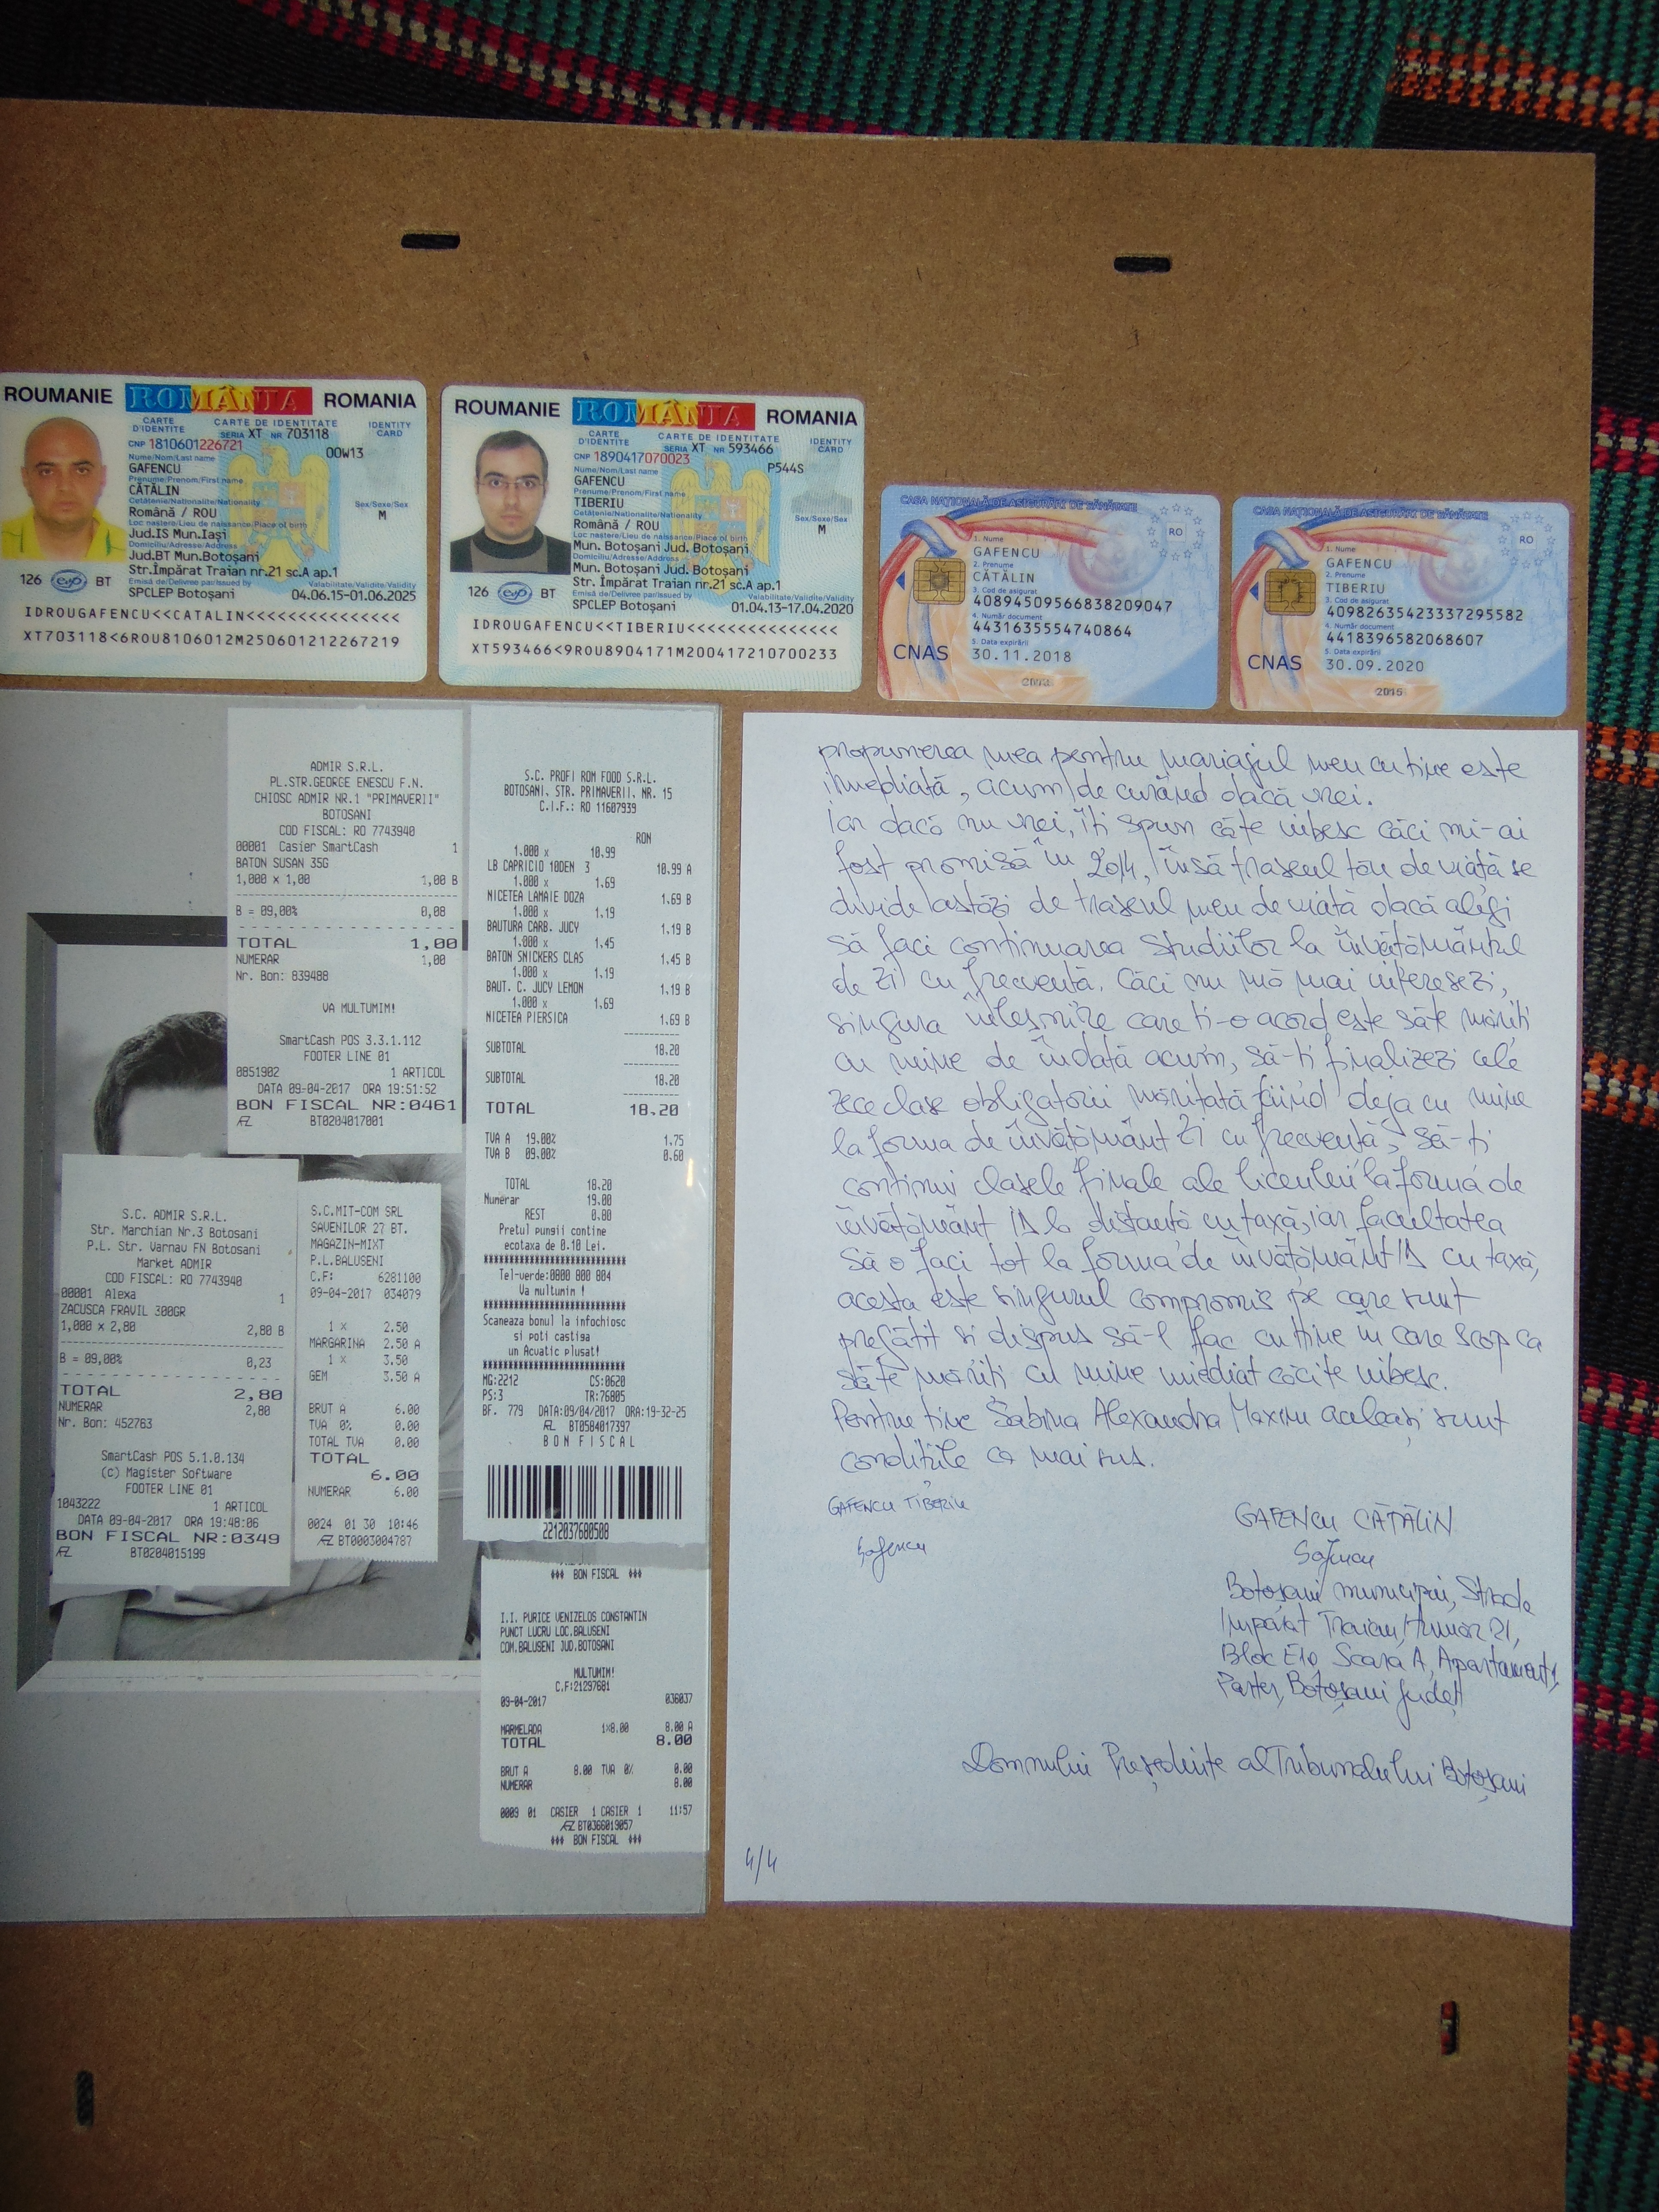 ROUMANIE ROMÂNIA ROMANIA
CARTE D'IDENTITE CARTE DE IDENTITATE IDENTITY CARD
SERIA XT NR 703118
CNP 1810601226721 00W13
Nume/Nom/Last name
GAFENCU
Prenume/Prenom/First name
CĂTĂLIN
Cetăţenie/Nationalite/Nationality Sex/Sexe/Sex
Română / ROU M
Loc naştere/Lieu de naissance/Place of birth
Jud.IS Mun.Iaşi
Domiciliu/Adresse/Address
Jud.BT Mun.Botoşani
Str.Împărat Traian nr.21 sc.A ap.1
126 BT Emisă de/Delivree par/Issued by Valabilitate/Validite/Validity
SPCLEP Botoşani 04.06.15-01.06.2025
IDROUGAFENCU<<CATALIN<<<<<<<<<<<<<<<
XT703118<6ROU8106012M250601212267219
ROUMANIE ROMÂNIA ROMANIA
CARTE D'IDENTITE CARTE DE IDENTITATE IDENTITY CARD
SERIA XT NR 593466
CNP 1890417070023 P544S
Nume/Nom/Last name
GAFENCU
Prenume/Prenom/First name
TIBERIU
Cetăţenie/Nationalite/Nationality Sex/Sexe/Sex
Română / ROU M
Loc naştere/Lieu de naissance/Place of birth
Mun. Botoşani Jud. Botoşani
Domiciliu/Adresse/Address
Mun. Botoşani Jud. Botoşani
Str. Împărat Traian nr.21 sc.A ap.1
126 BT Emisă de/Delivree par/Issued by Valabilitate/Validite/Validity
SPCLEP Botoşani 01.04.13-17.04.2020
IDROUGAFENCU<<TIBERIU<<<<<<<<<<<<<<<
XT593466<9ROU8904171M200417210700233
CASA NAŢIONALĂ DE ASIGURĂRI DE SĂNĂTATE
RO
1. Nume
GAFENCU
2. Prenume
CĂTĂLIN
3. Cod de asigurat
40894509566838209047
4. Număr document
4431635554740864
5. Data expirării
CNAS 30.11.2018
CASA NAŢIONALĂ DE ASIGURĂRI DE SĂNĂTATE
RO
1. Nume
GAFENCU
2. Prenume
TIBERIU
3. Cod de asigurat
40982635423337295582
4. Număr document
4418396582068607
5. Data expirării
CNAS 30.09.2020
2015
ADMIR S.R.L.
PL.STR.GEORGE ENESCU F.N.
CHIOSC ADMIR NR.1 "PRIMAVERII"
BOTOSANI
COD FISCAL: RO 7743940
00001 Casier SmartCash 1
BATON SUSAN 35G
1,000 x 1,00 1,00 B
B = 09,00% 0,08
TOTAL 1,00
NUMERAR 1,00
Nr. Bon: 839488
VA MULTUMIM!
SmartCash POS 3.3.1.112
FOOTER LINE 01
0851902 1 ARTICOL
DATA 09-04-2017 ORA 19:51:52
BON FISCAL NR:0461
BT0204017001
S.C. PROFI ROM FOOD S.R.L.
BOTOSANI, STR. PRIMAVERII, NR. 15
C.I.F.: RO 11607939
RON
1.000 x 10.99
LB CAPRICIO 10DEN 3 10.99 A
1.000 x 1.69
NICETEA LAMAIE DOZA 1.69 B
1.000 x 1.19
BAUTURA CARB. JUCY 1.19 B
1.000 x 1.45
BATON SNICKERS CLAS 1.45 B
1.000 x 1.19
BAUT. C. JUCY LEMON 1.19 B
1.000 x 1.69
NICETEA PIERSICA 1.69 B
SUBTOTAL 18.20
SUBTOTAL 18.20
TOTAL 18.20
TVA A 19.00% 1.75
TVA B 09.00% 0.60
TOTAL 18.20
Numerar 19.00
REST 0.80
Pretul pungii contine
ecotaxa de 0.10 Lei.
Tel-verde:0800 800 804
Va multumim !
Scaneaza bonul la infochiosc
si poti castiga
un Acuatic plusat!
MG:2212 CS:0620
PS:3 TR:76805
BF. 779 DATA:09/04/2017 ORA:19-32-25
BT0504017397
BON FISCAL
2212037680508
S.C. ADMIR S.R.L.
Str. Marchian Nr.3 Botosani
P.L. Str. Varnau FN Botosani
Market ADMIR
COD FISCAL: RO 7743940
00001 Alexa 1
ZACUSCA FRAVIL 300GR
1,000 x 2,80 2,80 B
B = 09,00% 0,23
TOTAL 2,80
NUMERAR 2,80
Nr. Bon: 452763
SmartCash POS 5.1.0.134
(c) Magister Software
FOOTER LINE 01
1043222 1 ARTICOL
DATA 09-04-2017 ORA 19:48:06
BON FISCAL NR:0349
BT0204015199
S.C.MIT-COM SRL
SAVENILOR 27 BT.
MAGAZIN-MIXT
P.L.BALUSENI
C.F: 6281100
09-04-2017 034079
1 x 2.50
MARGARINA 2.50 A
1 x 3.50
GEM 3.50 A
BRUT A 6.00
TVA 0% 0.00
TOTAL TVA 0.00
TOTAL
6.00
NUMERAR 6.00
0024 01 30 10:46
BT0003004787
*** BON FISCAL ***
I.I. PURICE VENIZELOS CONSTANTIN
PUNCT LUCRU LOC.BALUSENI
COM.BALUSENI JUD.BOTOSANI
MULTUMIM!
C.F:21297681
09-04-2017 036037
MARMELADA 1x8.00 8.00 A
TOTAL 8.00
BRUT A 8.00 TVA 0% 0.00
NUMERAR 8.00
0009 01 CASIER 1 CASIER 1 11:57
BT0366019057
*** BON FISCAL ***
propunerea mea pentru mariajul meu cu tine este
imediată, acum/de curând dacă vrei.
Iar dacă nu vrei, îți spun că te iubesc căci mi-ai
fost promisă în 2014, însă traseul tău de viață se
divide astăzi de traseul meu de viață dacă alegi
să faci continuarea studiilor la învățământul
de zi cu frecvență. Căci nu mă mai interesezi,
singura înlesnire care ți-o acord este să te măriți
cu mine de îndată acum, să-ți finalizezi cele
zece clase obligatorii măritată fiind deja cu mine
la forma de învățământ zi cu frecvență, să-ți
continui clasele finale ale liceului la forma de
învățământ ID la distanță cu taxă, iar facultatea
să o faci tot la forma de învățământ ID cu taxă,
acesta este singurul compromis pe care sunt
pregătit si dispus să-l fac cu tine în care scop ca
să te măriți cu mine imediat căci te iubesc.
Pentru tine Sabina Alexandra Maxim aceleași sunt
condițiile ca mai sus.
GAFENCU TIBERIU
Gafencu
GAFENCU CĂTĂLIN
Gafencu
Botoșani municipiu, Strada
Împărat Traian, număr 21,
Bloc E10 Scara A, Apartament 1,
Parter, Botoșani județ
Domnului Președinte al Tribunalului Botoșani
4/4